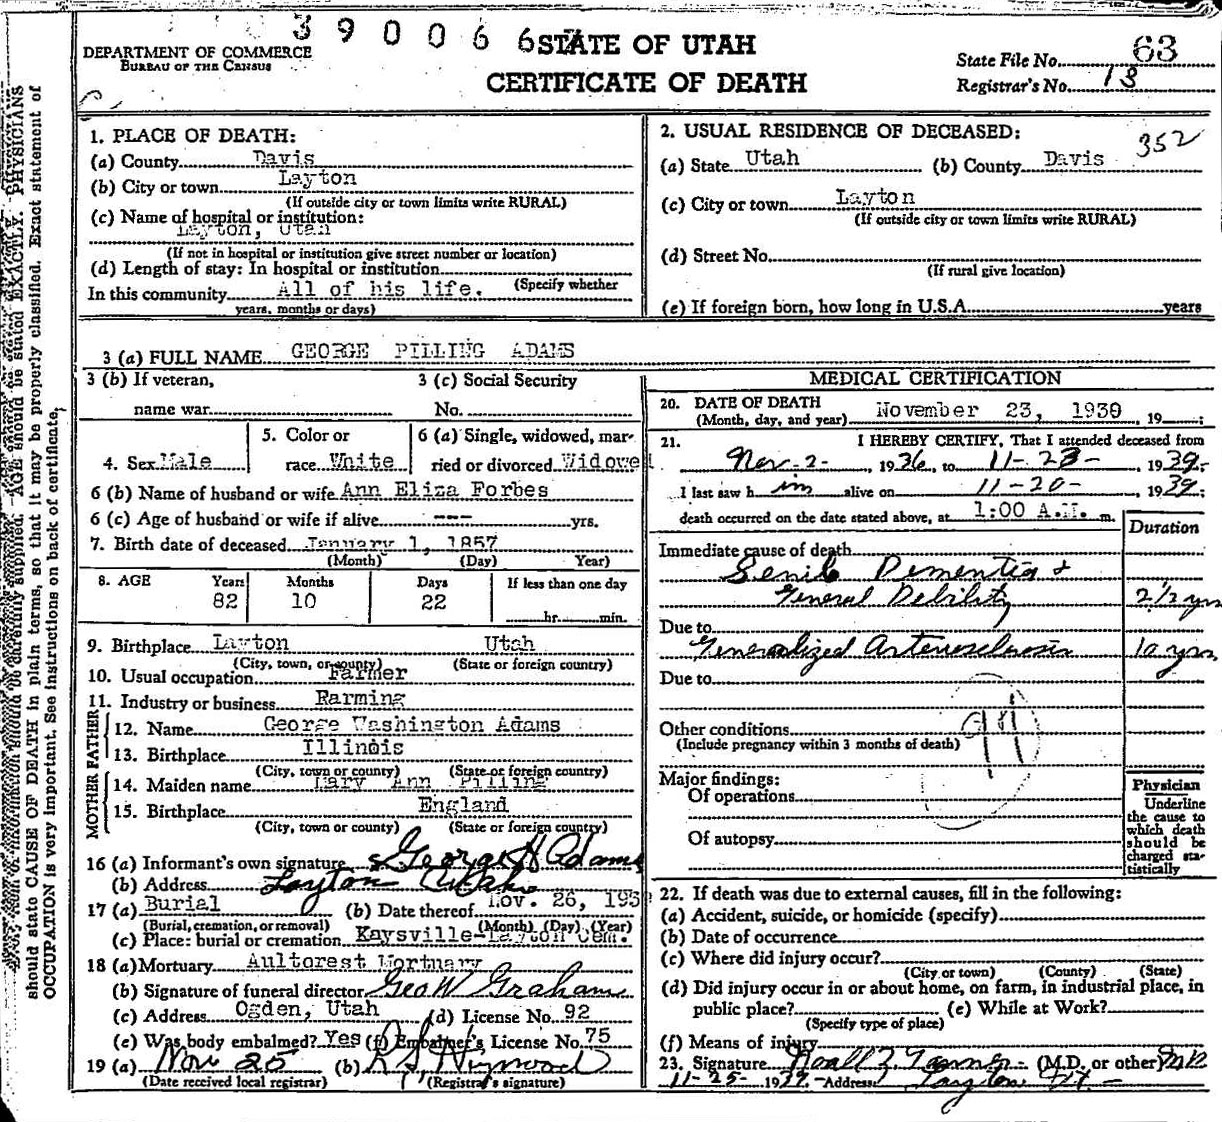 390066
STATE OF UTAH
CERTIFICATE OF DEATH
DEPARTMENT OF COMMERCE
BUREAU OF THE CENSUS
State File No. 63
Registrar's No. 13
should state CAUSE OF DEATH in plain terms, so that it may be properly classified. Exact statement of
OCCUPATION is very important. See instructions on back of certificate.
1. PLACE OF DEATH:
(a) County Davis
(b) City or town Layton
(If outside city or town limits write RURAL)
(c) Name of hospital or institution:
Layton, Utah
(If not in hospital or institution give street number or location)
(d) Length of stay: In hospital or institution
(Specify whether
In this community All of his life.
years, months or days)
2. USUAL RESIDENCE OF DECEASED:
352
(a) State Utah (b) County Davis
(c) City or town Layton
(If outside city or town limits write RURAL)
(d) Street No.
(If rural give location)
(e) If foreign born, how long in U.S.A. years
3 (a) FULL NAME GEORGE PILLING ADAMS
3 (b) If veteran,
name war
3 (c) Social Security
No.
4. Sex Male
5. Color or
race White
6 (a) Single, widowed, mar-
ried or divorced Widowe
6 (b) Name of husband or wife Ann Eliza Forbes
6 (c) Age of husband or wife if alive --- yrs.
7. Birth date of deceased January 1, 1857
(Month) (Day) Year)
8. AGE Years Months Days If less than one day
82 10 22 hr. min.
9. Birthplace Layton Utah
(City, town, or county) (State or foreign country)
10. Usual occupation Farmer
11. Industry or business Farming
FATHER
12. Name George Washington Adams
13. Birthplace Illinois
(City, town or county) (State or foreign country)
MOTHER
14. Maiden name Mary Ann Pilling
15. Birthplace England
(City, town or county) (State or foreign country)
16 (a) Informant's own signature George H Adams
(b) Address Layton Utah
17 (a) Burial (b) Date thereof Nov. 26, 193
(Burial, cremation, or removal) (Month) (Day) (Year)
(c) Place: burial or cremation Kaysville-Layton Cem.
18 (a) Mortuary Aultorest Mortuary
(b) Signature of funeral director Geo W Graham
(c) Address Ogden, Utah (d) License No. 92
(e) Was body embalmed? Yes (f) Embalmer's License No. 75
19 (a) Nov 25 (b)
(Date received local registrar) (Registrar's signature)
MEDICAL CERTIFICATION
20. DATE OF DEATH
(Month, day, and year) November 23, 1939, 19 ;
21. I HEREBY CERTIFY, That I attended deceased from
Nov-2-, 1936, to 11-23-, 1939,
I last saw h im alive on 11-20-, 1939;
death occurred on the date stated above, at 1:00 A.M. m.
Duration
Immediate cause of death
Senile Dementia &
General Debility 2 1/2 yrs
Due to
Generalized Arteriosclerosis 10 yrs
Due to
Other conditions
(Include pregnancy within 3 months of death)
Major findings:
Of operations
Of autopsy
Physician
Underline
the cause to
which death
should be
charged sta-
tistically
22. If death was due to external causes, fill in the following:
(a) Accident, suicide, or homicide (specify)
(b) Date of occurrence
(c) Where did injury occur?
(City or town) (County) (State)
(d) Did injury occur in or about home, on farm, in industrial place, in
public place? (e) While at Work?
(Specify type of place)
(f) Means of injury
23. Signature Noall Z. Tanner (M.D. or other) MD
11-25-1939. Address Layton Ut